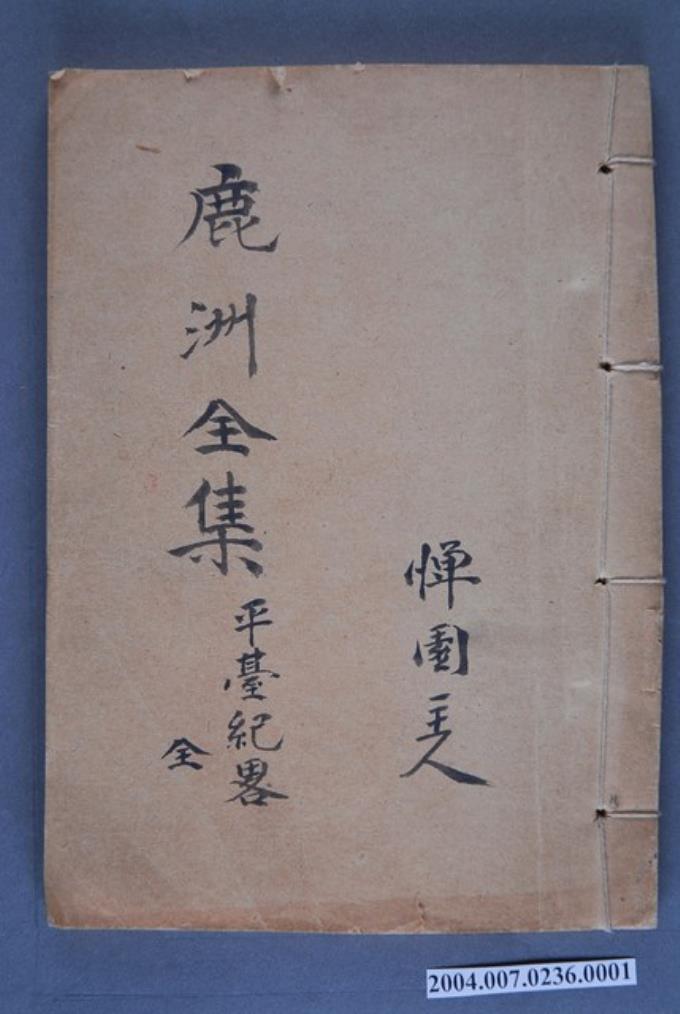 惲園主人
鹿洲全集
平臺紀畧
全
2004.007.0236.0001